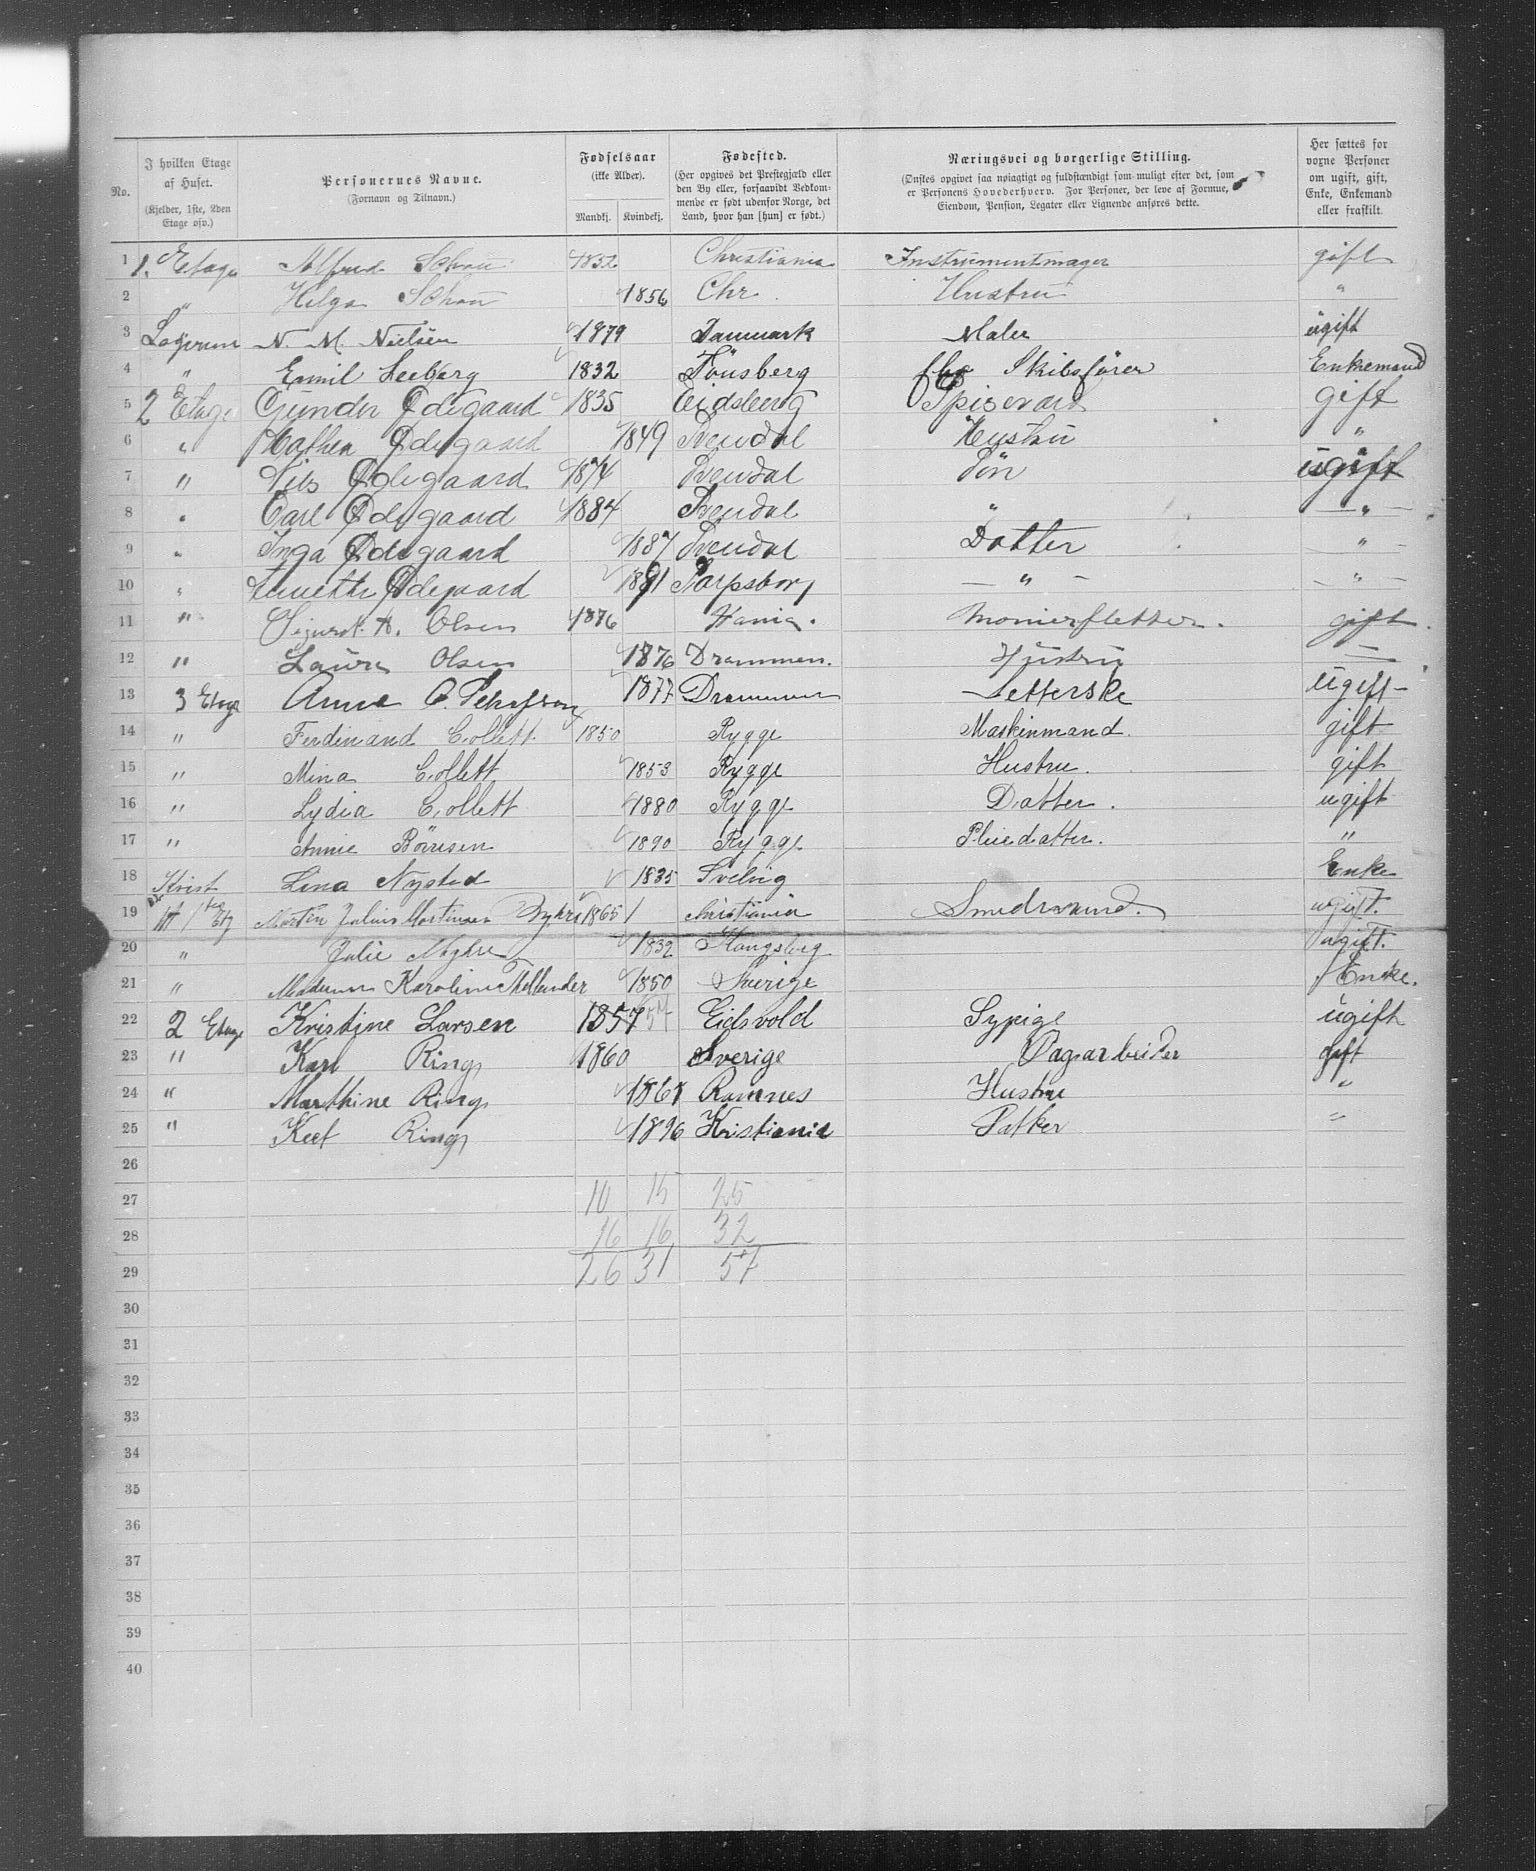 No.
I hvilken Etage af Huset. (Kjelder, 1ste, 2den Etage osv.)
Personernes Navne. (Fornavn og Tilnavn.)
Fødselsaar (ikke Alder). Mandkj. Kvindekj.
Fødested. (Her opgives det Prestegjæld eller den By eller, forsaavidt Vedkommende er født udenfor Norge, det Land, hvor han [hun] er født.)
Næringsvei og borgerlige Stilling. (Ønskes opgivet saa nøiagtigt og fuldstændigt som muligt efter det, som er Personens Hovederhverv. For Personer, der leve af Formue, Eiendom, Pension, Legater eller Lignende anføres dette.)
Her sættes for vogne Personer om ugift, gift, Enke, Enkemand eller fraskilt.
1 1. Etage Alfred Schou 1852 Christiania Instrumentmager gift
2 " Helga Schou 1856 Chr. Hustru "
3 N. M. Nielsen 1879 Danmark Maler ugift
4 " Emil Seeberg 1832 Tönsberg Skibsfører Enkemand
5 2 Etage Gunder Ødegaard 1835 Eidsberg Spisevært gift
6 " Mathea Ødegaard 1849 Hustru "
7 " Nils Ødegaard 1874 Sön ugift
8 " Carl Ødegaard 1884 " "
9 " Inga Ødegaard 1887 Datter "
10 " Ødegaard 1891 Sarpsborg " "
11 " Sigurd A. Olsen 1876 Xania. gift.
12 " Laura Olsen 1876 Drammen. Hustru —
13 3 Etage Anna 1877 Drammen Setterske ugift
14 " Ferdinand Collett 1850 Rygge Maskinmand. gift
15 " Mina Collett 1853 Rygge Hustru. gift
16 " Lydia Collett 1880 Rygge Datter. ugift
17 " Annie 1890 Rygge Pleiedatter. "
18 Kvist Lina Nysted 1835 Svelvig Enke
19 Morten Julius Mortensen 1865 1 Christiania Smedsvend. ugift.
20 " Julie 1832 Kongsberg ugift.
21 " Madamm Karoline 1850 Sverige Enke.
22 2 Etage Kristine Larsen 1857 57 Eidsvold Sypige ugift
23 " Karl Ring 1860 Sverige Dagarbeider gift
24 " Marthine Ring Ramnes Hustru "
25 " Ring 1896 Kristiania Datter "
26
27 10 15 25
28 16 16 32
29 26 31 57
30
31
32
33
34
35
36
37
38
39
40